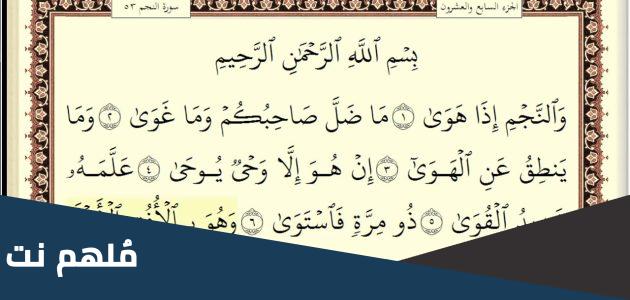 الجزء السابع والعشرون
سورة النجم ٥٣
بِسْمِ ٱللَّهِ ٱلرَّحْمَٰنِ ٱلرَّحِيمِ
وَٱلنَّجْمِ إِذَا هَوَىٰ ١ مَا ضَلَّ صَاحِبُكُمْ وَمَا غَوَىٰ ٢ وَمَا
يَنطِقُ عَنِ ٱلْهَوَىٰٓ ٣ إِنْ هُوَ إِلَّا وَحْىٌ يُوحَىٰ ٤ عَلَّمَهُۥ
ٱلْقُوَىٰ ٥ ذُو مِرَّةٍ فَٱسْتَوَىٰ ٦ وَهُوَ
مُلهم نت